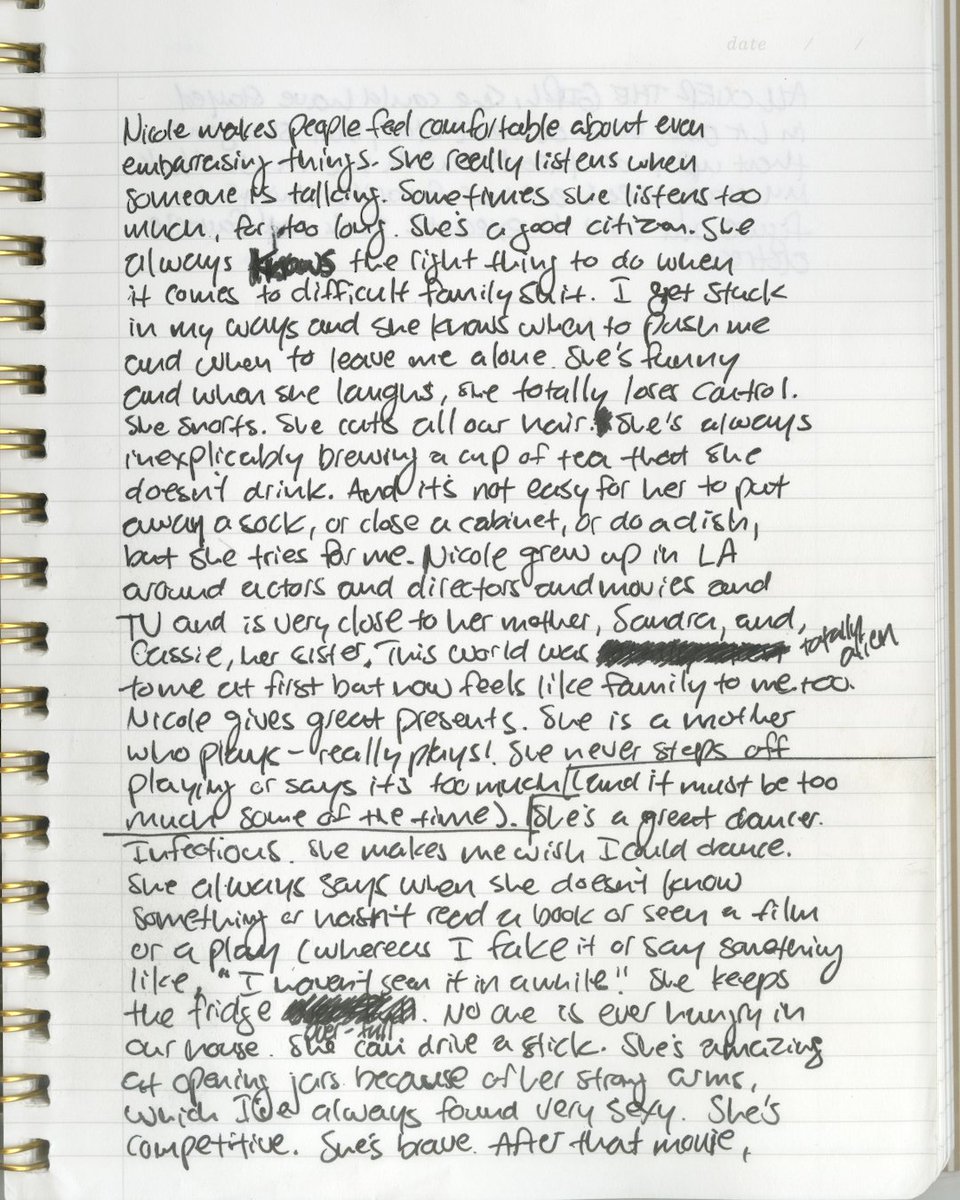 date / /
Nicole makes people feel comfortable about even
embarrasing things. She really listens when
someone is talking. Sometimes she listens too
much, for too long. She's a good citizen. She
always knows the right thing to do when
it comes to difficult family shit. I get stuck
in my ways and she knows when to push me
and when to leave me alone. She's funny
and when she laughs, she totally loses control.
She snorts. She cuts all our hair. She's always
inexplicably brewing a cup of tea that she
doesn't drink. And it's not easy for her to put
away a sock, or close a cabinet, or do a dish,
but she tries for me. Nicole grew up in LA
around actors and directors and movies and
TV and is very close to her mother, Sandra, and,
Cassie, her sister. This world was totally alien
to me at first but now feels like family to me too.
Nicole gives great presents. She is a mother
who plays – really plays! She never steps off
playing or says it's too much (and it must be too
much some of the time). She's a great dancer.
Infectious. She makes me wish I could dance.
She always says when she doesn't know
something or hasn't read a book or seen a film
or a play (whereas I fake it or say something
like, "I haven't seen it in awhile". She keeps
the fridge over-full. No one is ever hungry in
our house. She can drive a stick. She's amazing
at opening jars because of her strong arms,
which I've always found very sexy. She's
competitive. She's brave. After that movie,